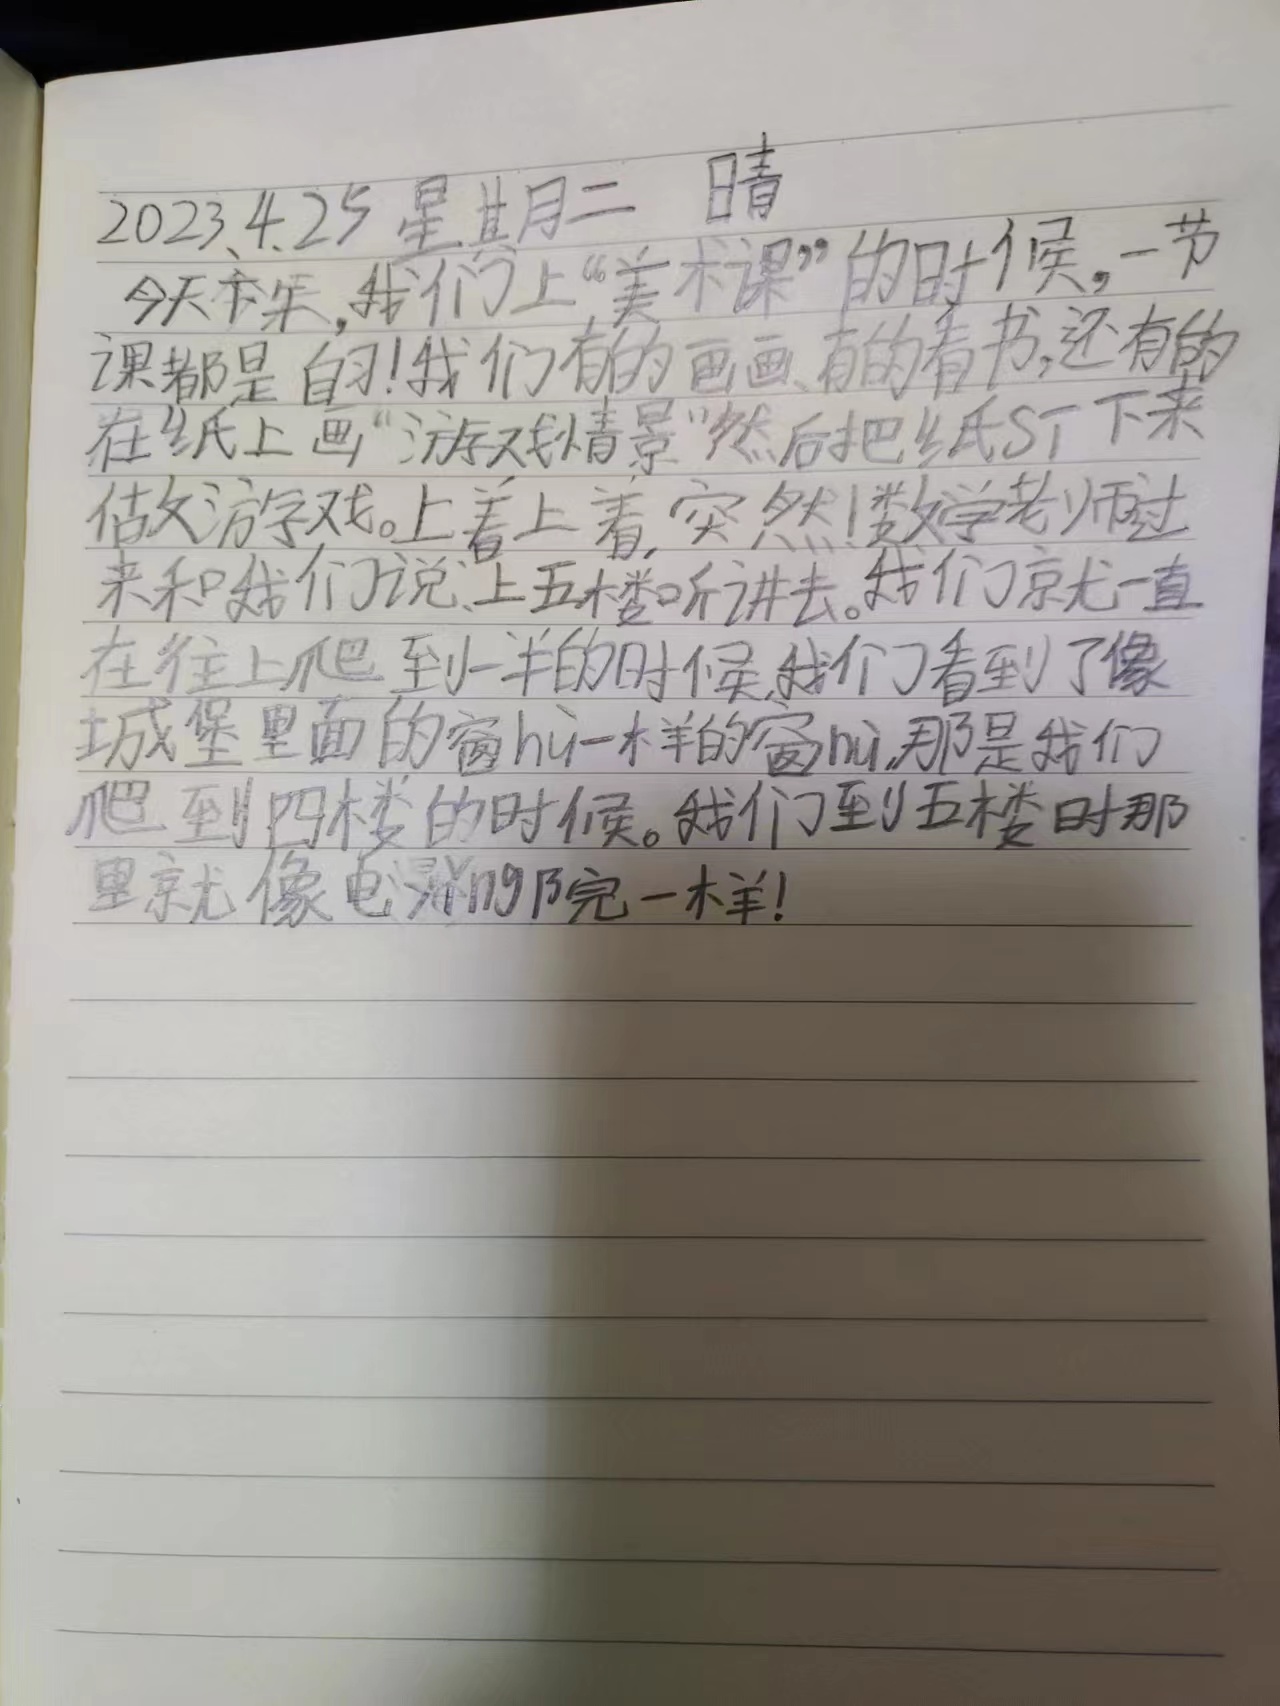 2023.4.25 星期二 晴
今天,我们上“美术课”的时候,一节
课都是自习!我们有的画画、有的看书,还有的
在纸上画“游戏情景”然后把纸sī下来
做游戏。上着上着,突然!数学老师过
来和我们说、上五楼听讲去。我们就一直
在往上爬 到一半的时候,我们看到了像
城堡里面的窗hù一样的窗hù,那是我们
爬到四楼的时候。我们到五楼时那
里就像电yǐng院一样!